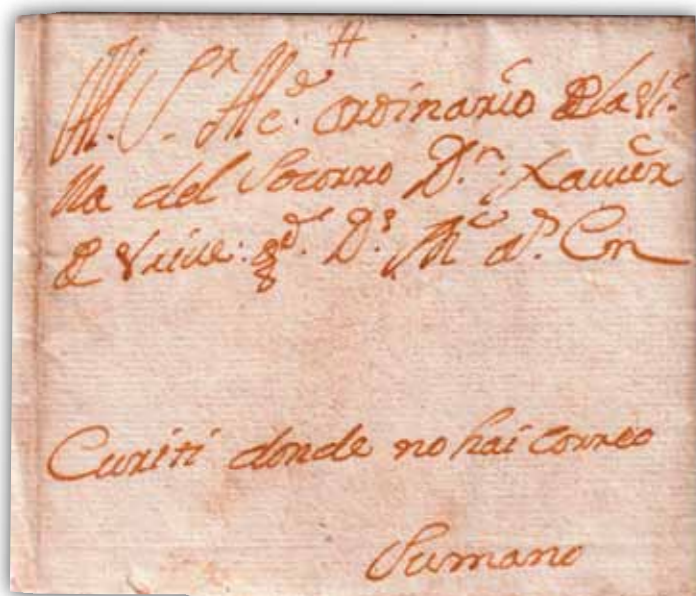 #
M. S.r Alc.e ordinario de la Vi.
lla del Socorro D.n Xavier
de Vrive: g.d D.s M.s a.s En
Curiti donde no hai correo
Sumano